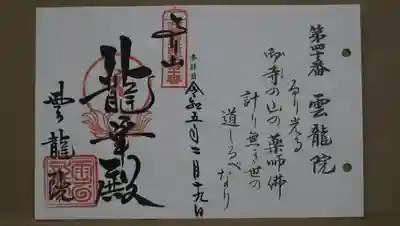 第四十番 雲龍院
るり光る
御寺の山の薬師佛
計り無き世の
道しるべなり
参拝日 令和五年二月十九日
龍華殿
雲龍院